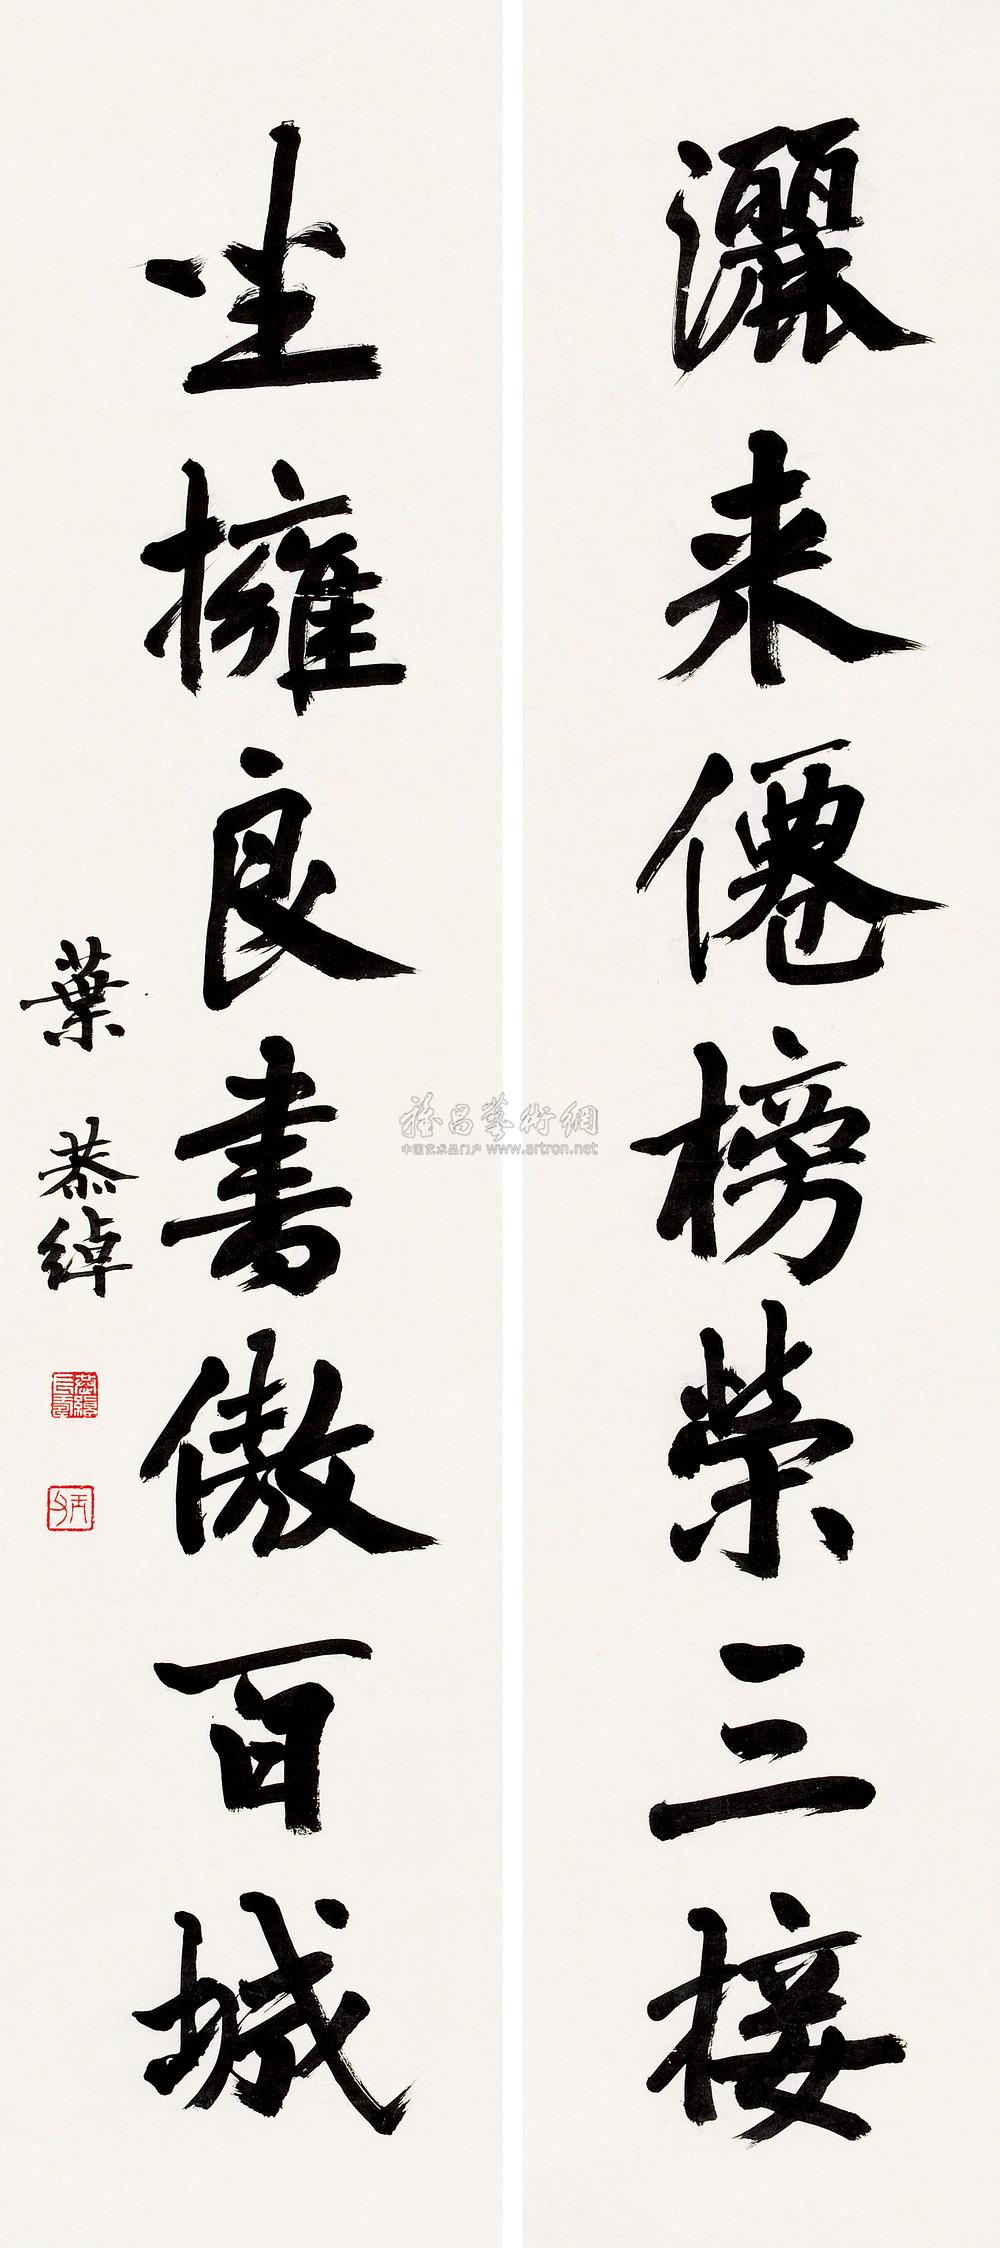 灑来僊榜榮三接
坐擁良書傲百城
葉恭綽
雅昌藝術網
中国艺术品门户 www.artron.net